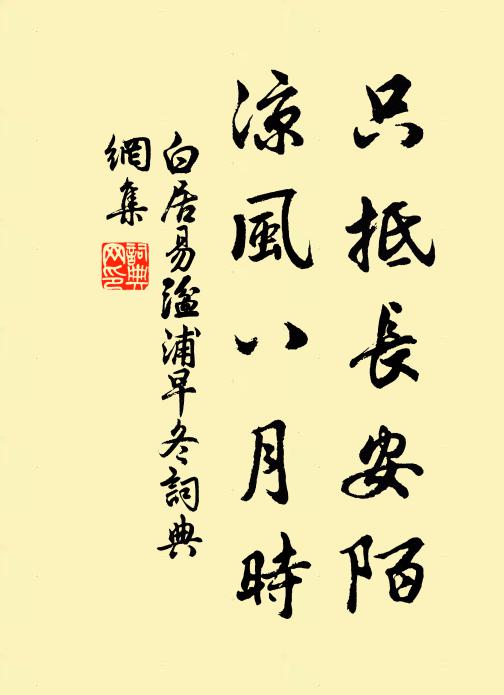 只抵長安陌
涼風八月時
白居易湓浦早冬詞典
網集
詞典
网印